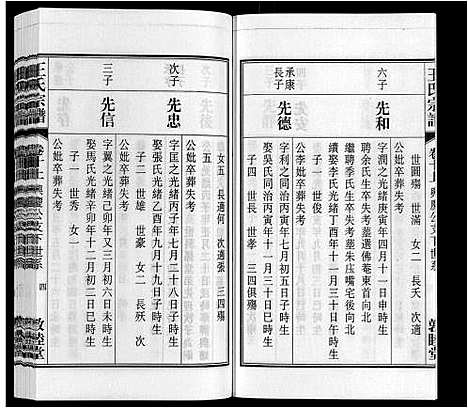 王氏宗譜
世圓殤 世滿 女二 長夭 次適
六子
先和
字同之光緒庚寅年四月十一日申時生
聘余氏生卒失考墓選佛菴東首向北
繼聘李氏生卒失考墓朱庄嘴宅後向北
續娶李氏光緒丁酉年十一月三十日午時生
子一 世俊
公妣卒葬失考
承康長子
先德
字利之同治丙寅年九月初五日子時生
公李妣氏同治丙寅年十一月初二日寅時生
公妣卒葬失考
子四 世長 世孝 三四俱殤
女五 長適何 次適張 三四殤
五
次子
先忠
字匡之光緒丙子年七月二十八日子時生
娶張氏光緒乙酉年九月十九日子時生
子二 世雄 世豪 女二 長殀 次
公妣卒葬失考
三子
先信
字翼之光緒己卯年又三月初六日未時生
娶馬氏光緒辛卯年十二月初二日巳時生
子一 世秀 女一
公妣卒葬失考
四
敦睦堂